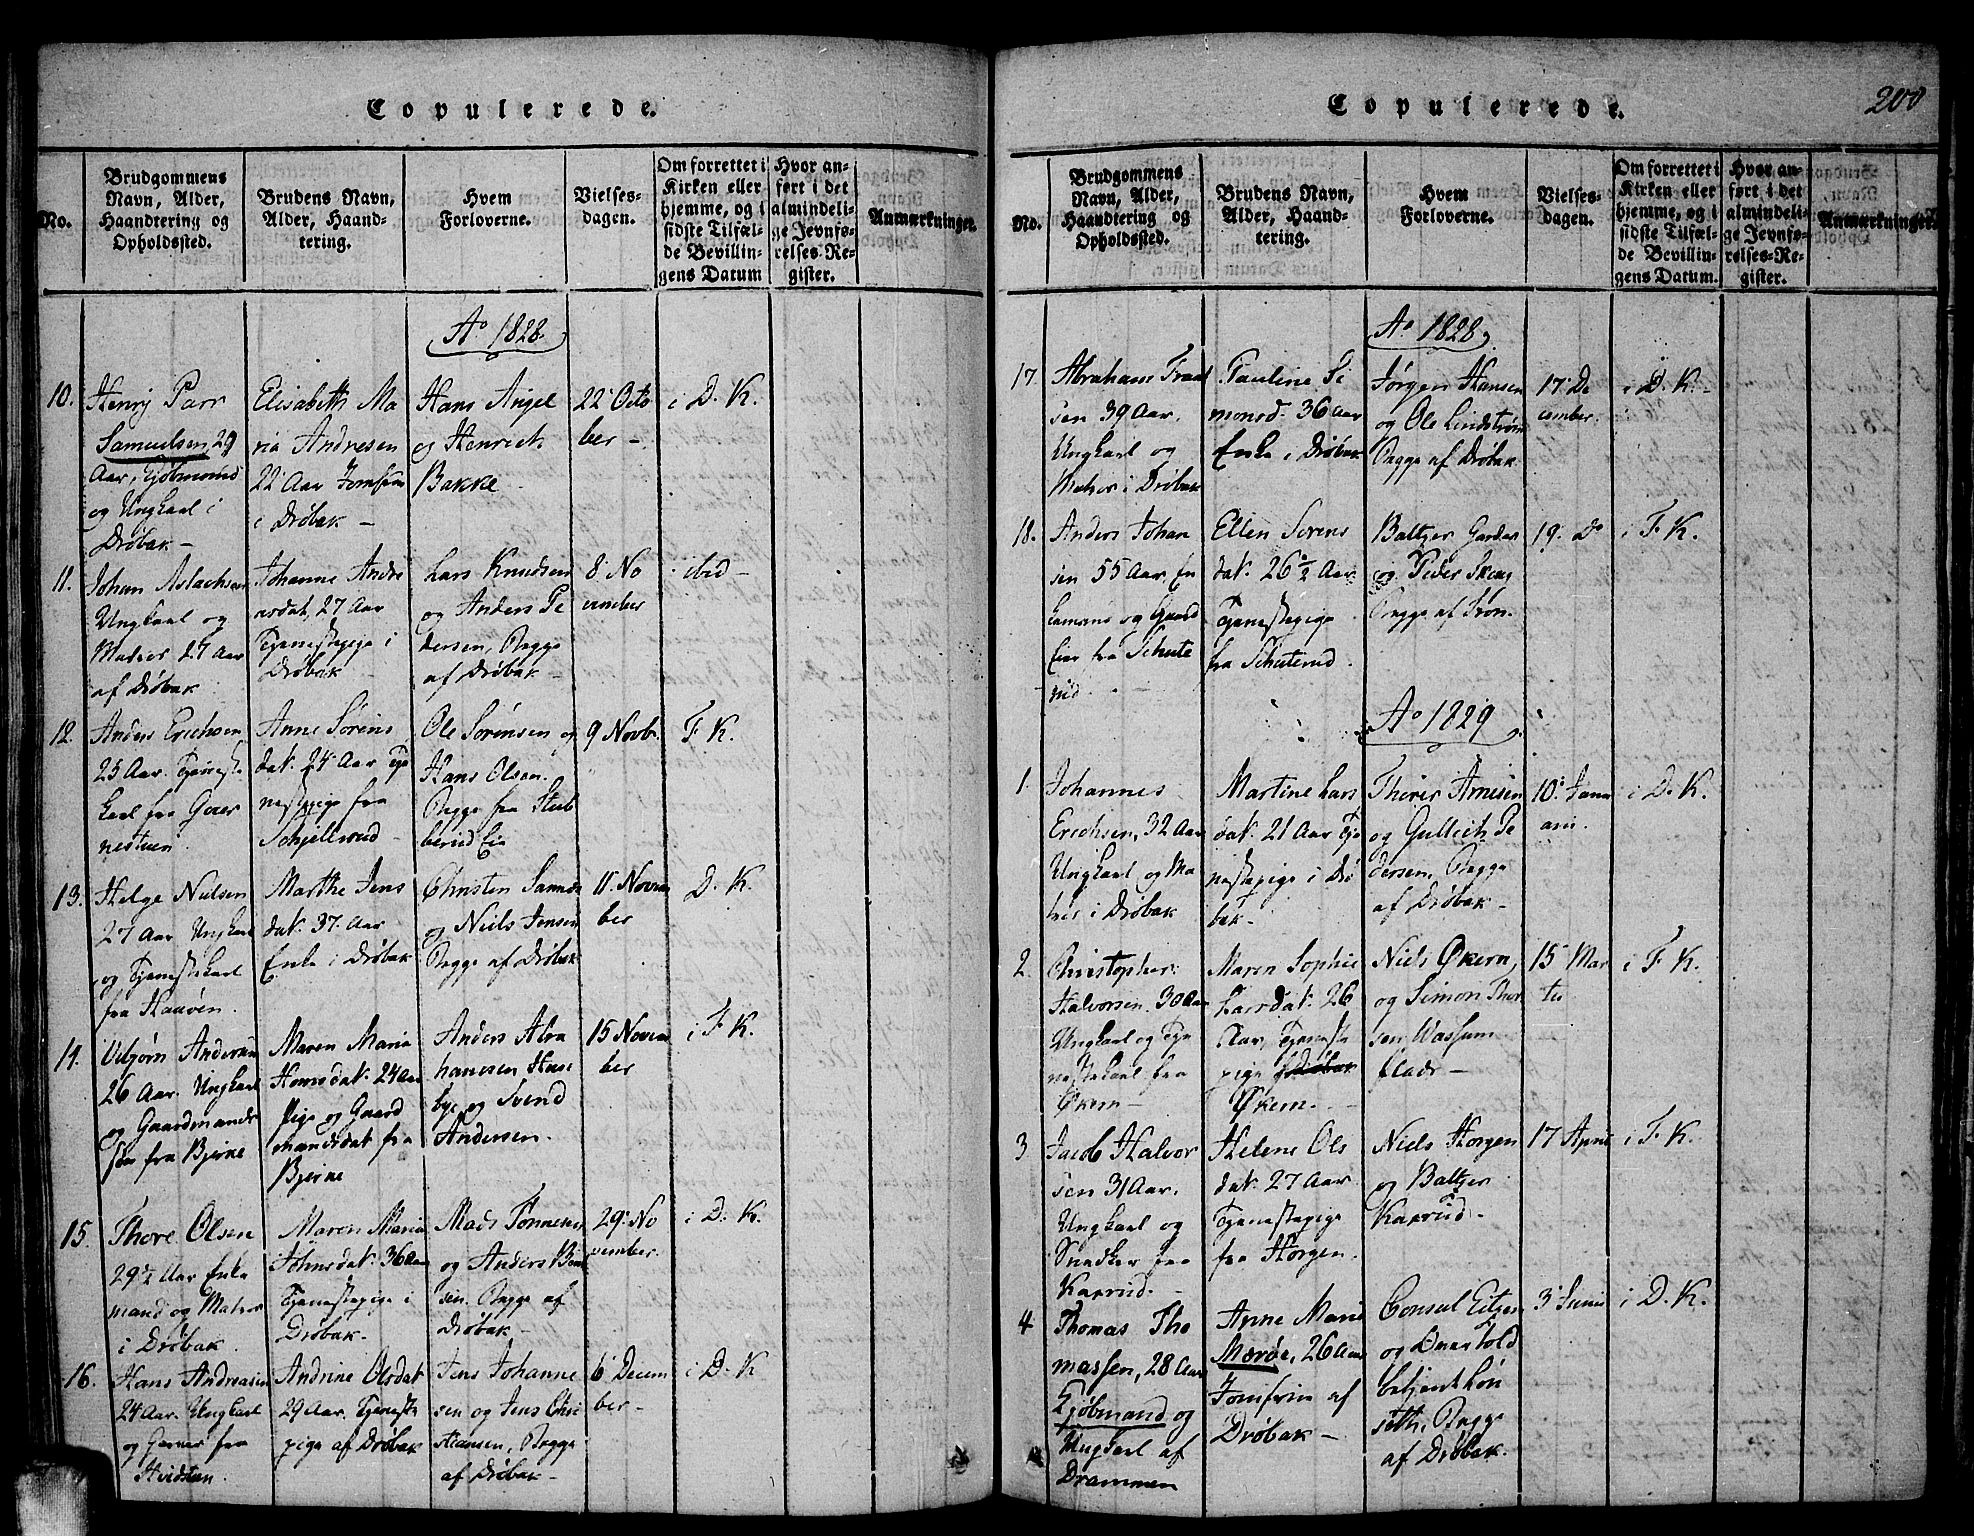 Copulerede.
No.
Brudgommens
Navn, Alder,
Haandtering og
Opholdssted.
Brudens Navn,
Alder, Haand-
tering.
Hvem
Forloverne.
Vielses-
dagen.
Om forrettet i
Kirken eller
hjemme, og i
sidste Tilfæl-
de Bevillin-
gens Datum
Hvor an-
ført i det
almindeli-
ge Jevnfø-
relses-Re-
gister.
Anmærkninger.
Ao 1828.
10.
Henrj Parr
Samuelsen, 29
Aar, Kjøbmand
og Ungkarl i
Drøbak –
Elisabeth Ma
ria Andresen
22 Aar Jomfrue
i Drøbak –
Hans Angel
og Henrick
Bakke
22 Octo
ber –
i D. K.
11.
Johan Aslachsen
Ungkarl og
Matros 27 Aar
af Drøbak
Johanne Andre
asdat, 27 Aar
Tjenestepige i
Drøbak
Lars Knudsen
og Anders Pe
dersen, Begge
af Drøbak –
8 No
vember
ibid –
12.
Anders Erichsen
25 Aar. Tjeneste
karl fra
Anne Sørens
dat. 24 Aar Tje
nestepige fra
Ole Sørensen og
Hans Olsen.
Begge fra
9 Novbr.
F. K.
13.
Helge Nielsen
27 Aar Ungkarl
og Tjenestekarl
fra
Marthe Jens
dat. 37 Aar
Enke i Drøbak
Christen
og Niels Jensen
Begge af Drøbak
11. Novem
ber
D. K.
14.
Andersen
26 Aar. Ungkarl
og Gaardmands
Søn fra Bjerke
Maren Maria
Hansdat. 24 Aar
Pige og Gaard
mandsdat fra
Bjerke
Anders Abra
hamsen Huse
bye og Svend
Andersen.
15 Novem
ber
i F. K.
15.
Thore Olsen
29½ Aar Enke
mand og Matros
i Drøbak
Maren Maria
Johnsdat. 36 Aar
Tjenestepige i
Drøbak –
Mads Tønnesen
og Anders Ben
sen. Begge af
Drøbak –
29 No
vember.
i D. K.
16.
Hans Andreasen
24 Aar. Ungkarl
og Garver fra
Hvidsteen.
Andrine Olsdat
29 Aar. Tjeneste
pige af Drøbak
Jens Johanne
sen og Jens Chri
stiansen, Begge
af Drøbak –
6 Decem
ber –
i D. K
Copulerede.
200
No.
Brudgommens
Navn, Alder,
Haandtering og
Opholdssted.
Brudens Navn,
Alder, Haand-
tering.
Hvem
Forloverne.
Vielses-
dagen.
Om forrettet i
Kirken eller
hjemme, og i
sidste Tilfæl-
de Bevillin-
gens Datum.
Hvor an-
ført i det
almindeli-
ge Jevnfø-
relses-Re-
gister.
Anmærkninger.
Ao 1828.
17.
Abraham Traal
sen 39 Aar.
Ungkarl og
Matros i Drøbak
Pauline Si
monsd. 36 Aar
Enke i Drøbak
Jørgen Hansen
og Ole Lindstrøm
Begge af Drøbak
17 De
cember.
i D. K. –
18.
Anders Johan
sen 55 Aar. En
kemand og Gaard
Eier fra Schute
rud
Ellen Sørens
dat. 26½ Aar
Tjenestepige
fra Schuterud.
Baltzer Garder
og Peder
Begge af Frøn.
19. Do
i F. K.
Ao 1829
1
Johannes
Erichsen, 32 Aar
Ungkarl og Ma
tros i Drøbak
Martine Lars
dat. 21 Aar Tje
nestepige i Drø
bak –
Thores Arnesen
og Gullich Pe
dersen, Begge
af Drøbak –
10 Janu
ari.
i D. K.
2.
Christopher
Halvorsen. 30 Aar
Ungkarl og Tje
nestekarl fra
Økern –
Maren Sophie
Larsdat. 26
Aar, Tjeneste
pige f Drøbak
Økern. –
Niels Økern,
og Simon Thor
sen Wassum
flade –
15 Mar
ts
i F. K.
3
Jacob Halvor
sen 31 Aar.
Ungkarl og
Snedker fra
Kaxrud. –
Helene Ols
dat. 27 Aar.
Tjenestepige
fra Horgen.
Niels Horgen
og Baltzer
Kaxrud –
17 April
i F. K.
4
Thomas Tho
massen, 28 Aar
Kjøbmand og
Ungkarl af
Drammen
Anne Marie
Mærøe, 26 Aar
Jomfrue af
Drøbak –
Consul Eitzen
og Overtold
betjent
Begge
af Drøbak.
3 Junii
i D. K.